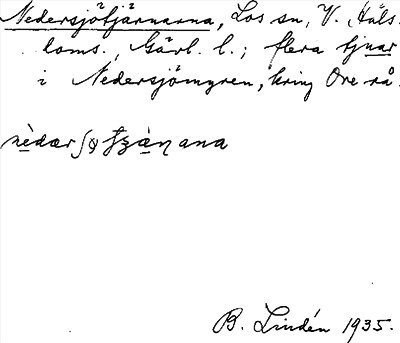 Nedersjötjärnarna, Los sn, V. Häls.
loms., Gävl. l.; flera tjnar
i Nedersjömyren, kring Ore rå.
B. Lindén 1935.